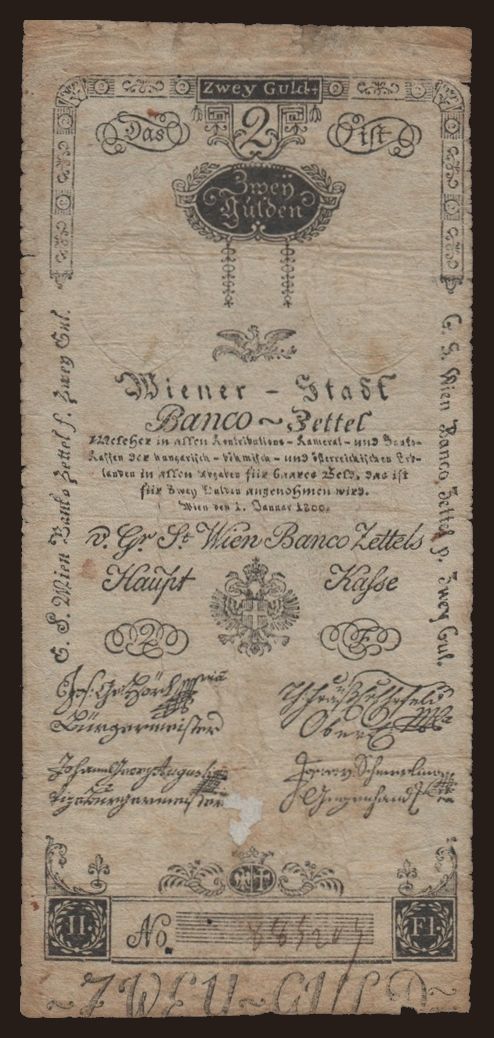 Zwey Guld.
2
Das ist
Zwey
Gulden
Wiener - Stadt
Banco ~ Zettel
welcher in allen Kontributions - Kameral - und Banko-
Kassen der hungarisch - böhmisch - und österreichischen Erb-
landen in allen Abgaben für baares Geld, das ist
für Zwey Gulden angenohmen wird.
Wien den 1. Januar 1800.
v. Gr. St. Wien Banco Zettels
Haupt Kasse
2 F
Bürgermeister
Johann Georg Augusti
Vizebürgermeister
Ober
II. No. 885207 Fl.
~ZWEY~GULD
E. S. Wien Banko Zettel f. Zwey Gul.
E. S. Wien Banco Zettel p. Zwey Gul.